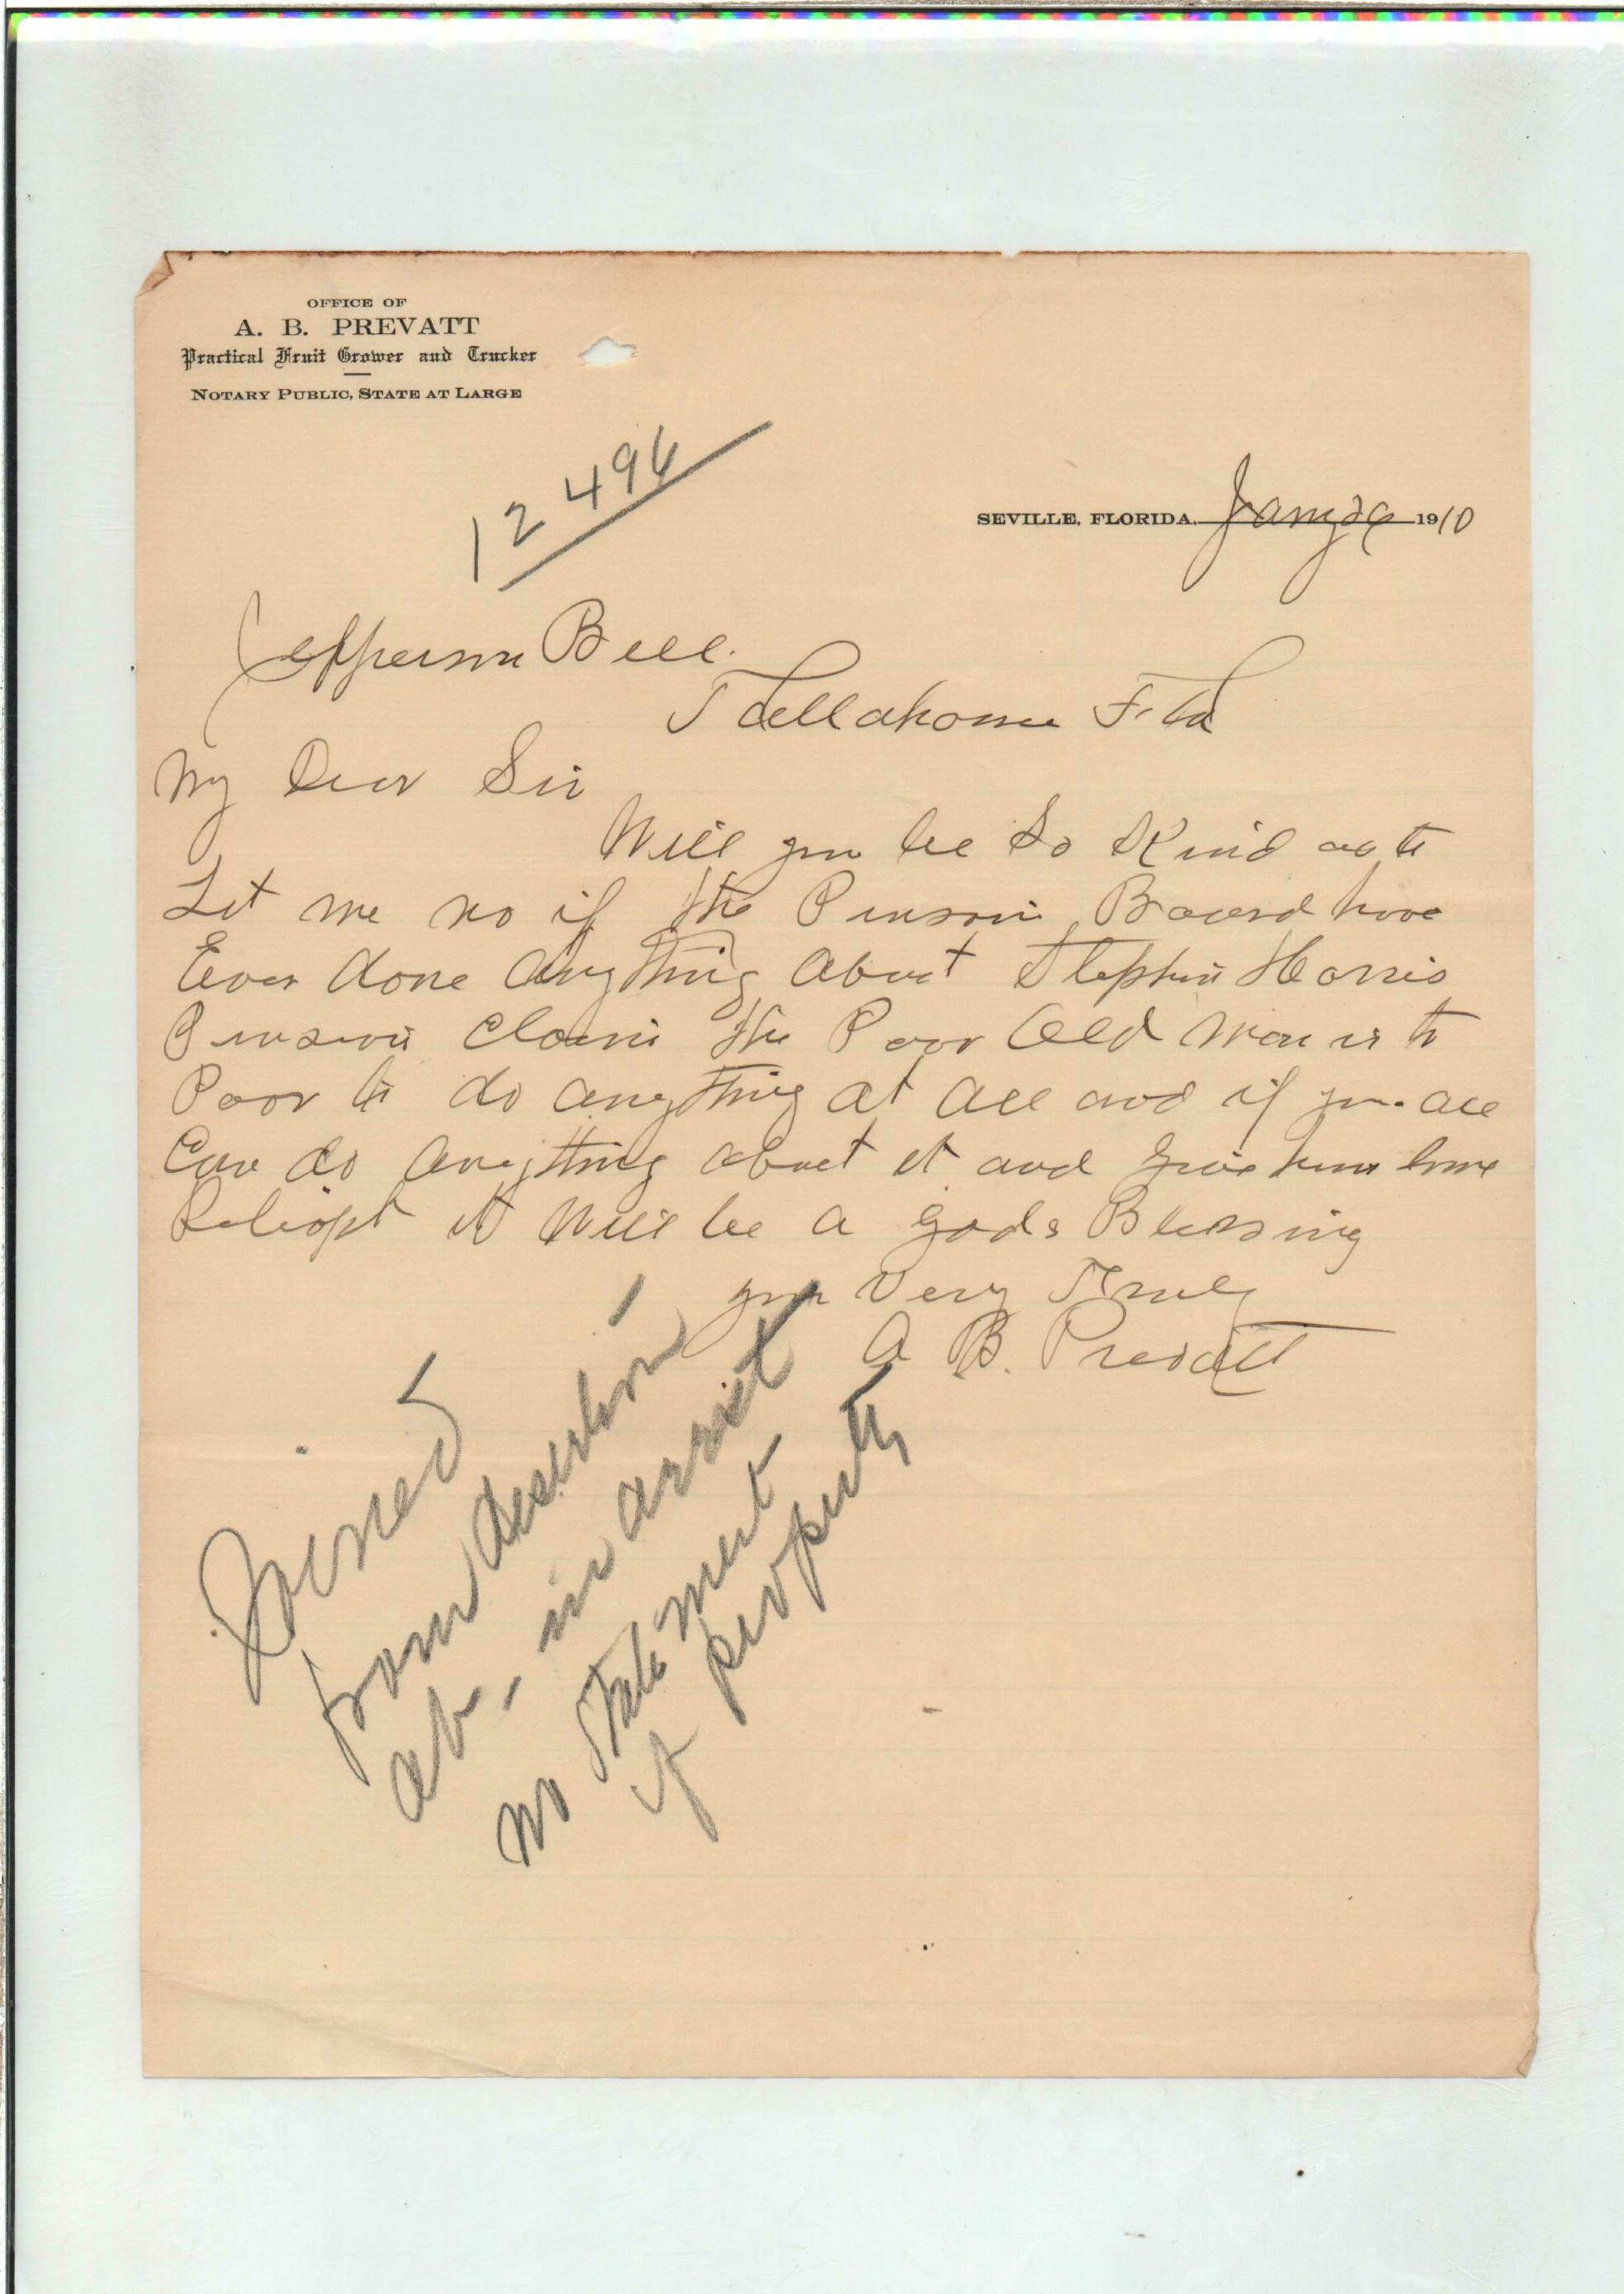 OFFICE OF
A. B. PREVATT
Practical Fruit Grower and Trucker
NOTARY PUBLIC, STATE AT LARGE
12496
SEVILLE, FLORIDA, Jany 26 1910
Jefferson Bell.
Tallahassee Fla
My Dear Sir
Will you be So Kind as to
Let me no if the Pension Board have
Ever done Anything About Stephen Harris
Pension Claim the Poor Old Man is to
Poor to do anything at all and if you all
Can do Anything about it and give him some
it Will be a gods Blessing
your Very Truly
A B. Prevatt
from desertion
in
no Statement
of property